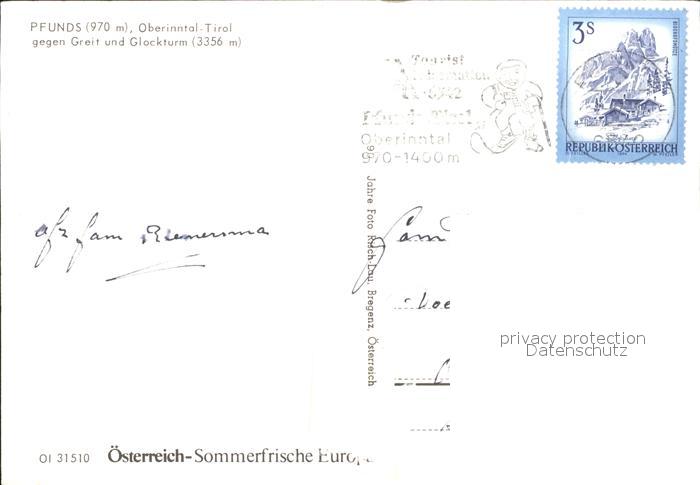 PFUNDS (970 m), Oberinntal-Tirol
gegen Greit und Glockturm (3356 m)
Tourist
Information
Oberinntal
970-1400m
3S
REPUBLIK ÖSTERREICH
afz fam Riemersma
Fam
Jahre Foto Risch-Lau, Bregenz, Österreich
privacy protection
Datenschutz
OI 31510 Österreich-Sommerfrische Europas